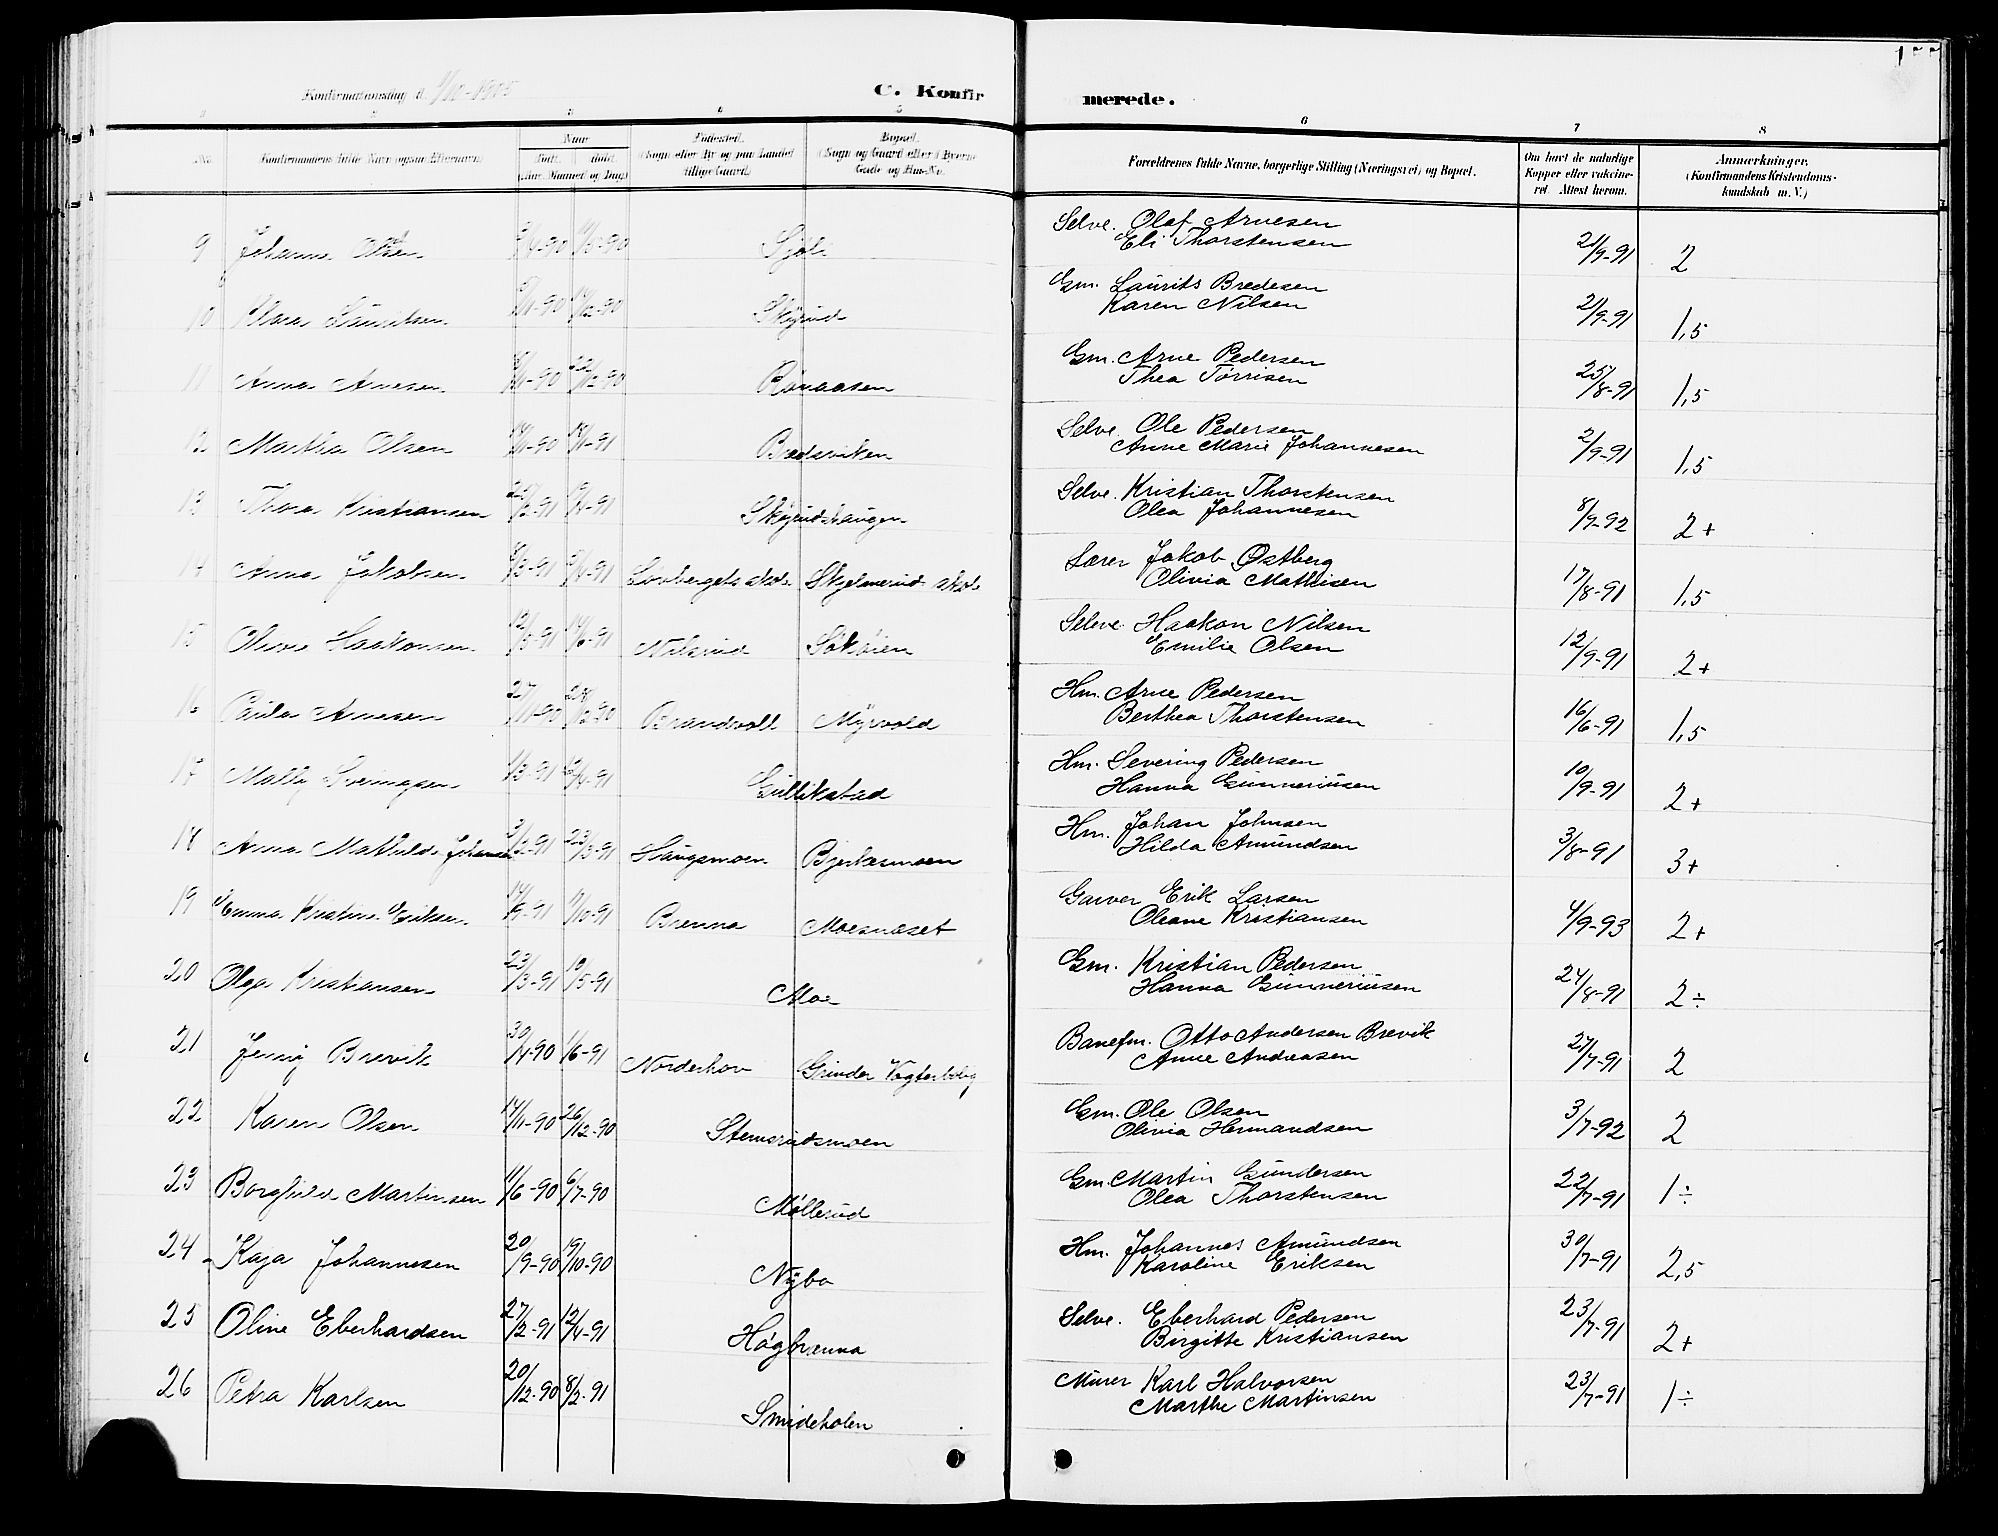 Konfirmationsdag d. 1/10-1905
C. Konfirmerede.
5 6 7 8
No.
Konfirmandens fulde Navn (ogsaa Efternavn).
Naar
født. døbt.
(Aar, Maaned og Dag)
Fødested.
(Sogn eller By og paa Landet
tillige Gaard)
Bopæl.
(Sogn og Gaard eller i Byerne
Gade og Hus-No.
Forældrenes fulde Navne, borgerlige Stilling (Næringsvei) og Bopæl.
Om havt de naturlige
Kopper eller vaccine-
ret. Attest herom.
Anmærkninger.
(Konfirmandens Kristendoms-
kundskab m. V.)
9 Johanne Olsen -90 -90 Sjøli Selve. Olaf Arnesen 2/9-91 2
Eli Thorstensen
10 Klara Lauritsen /11-90 /12-90 Skøyrud Gm. Laurits Bredesen 2/9-91 1,5
Karen Nilsen
11 Anna Arnesen /11-90 22/12-90 Rønaasen Gm. Arne Pedersen 25/8-91 1,5
Thea Torrisen
12 Martha Olsen 14/11-90 18/1-91 Brødsviken Selve. Ole Pedersen 2/9-91 1,5
Anne Marie Johannesen
13 Thora Kristiansen 25/2-91 /4-91 Skøyrudshaugen Selve. Kristian Thorstensen 8/9-92 2+
Olea Johannesen
14 Anna Jakobsen /3-91 /4-91 Lovbergets skole Skjelmerud skole Lærer Jakob Østberg 17/8-91 1,5
Olivia Mathisen
15 Olive Haakonsen 12/5-91 14/6-91 Nilsrud Søkøien Seleve. Haakon Nilsen 12/9-91 2+
Emilie Olsen
16 Paula Arnesen 27/11-90 28/12-90 Brandvoll Myrvold Hm. Arne Pedersen 16/6-91 1,5
Berthea Thorstensen
17 Mally Severingsen 1/3-91 /4-91 Gullikstad Hm. Severing Pedersen 10/9-91 2+
Hanna Gunneriusen
18 Anna Mathilde Johansen 3/2-91 23/3-91 Haugsmoen Bjerkesmoen Hm. Johan Johnsen 3/8-91 3+
Hilda Amundsen
19 Emma Kristine Eriksen 14/9-91 1/10-91 Brenna Moesnæset Garver Erik Larsen 4/9-93 2+
Oleane Kristiansen
20 Olga Kristiansen 23/3-91 10/5-91 Moe Gm. Kristian Pedersen 24/8-91 2÷
Hanna Gunneriusen
21 Jenny Brevik 30/4-90 1/6-91 Norderhov Grinder Vogterbolig Banefm. Otto Andersen Brevik 27/7-91 2
Anne Andreasen
22 Karen Olsen 14/11-90 26/12-90 Stemsrudsmoen Gm. Ole Olsen 3/7-92 2
Olivia Hermandsen
23 Borghild Martinsen 11/6-90 6/7-90 Møllerud Gm. Martin Gundersen 22/7-91 1÷
Olea Thorstensen
24 Kaja Johannesen 20/9-90 19/10-90 Nybo Hm. Johannes Amundsen 30/7-91 2,5
Karoline Eriksen
25 Oline Eberhardsen 27/2-91 12/4-91 Høgbrenna Selve. Eberhard Pedersen 23/7-91 2+
Birgitte Kristiansen
26 Petra Karlsen 20/12-90 8/2-91 Smideholen Murer Karl Halvorsen 23/7-91 1÷
Marthe Martinsen